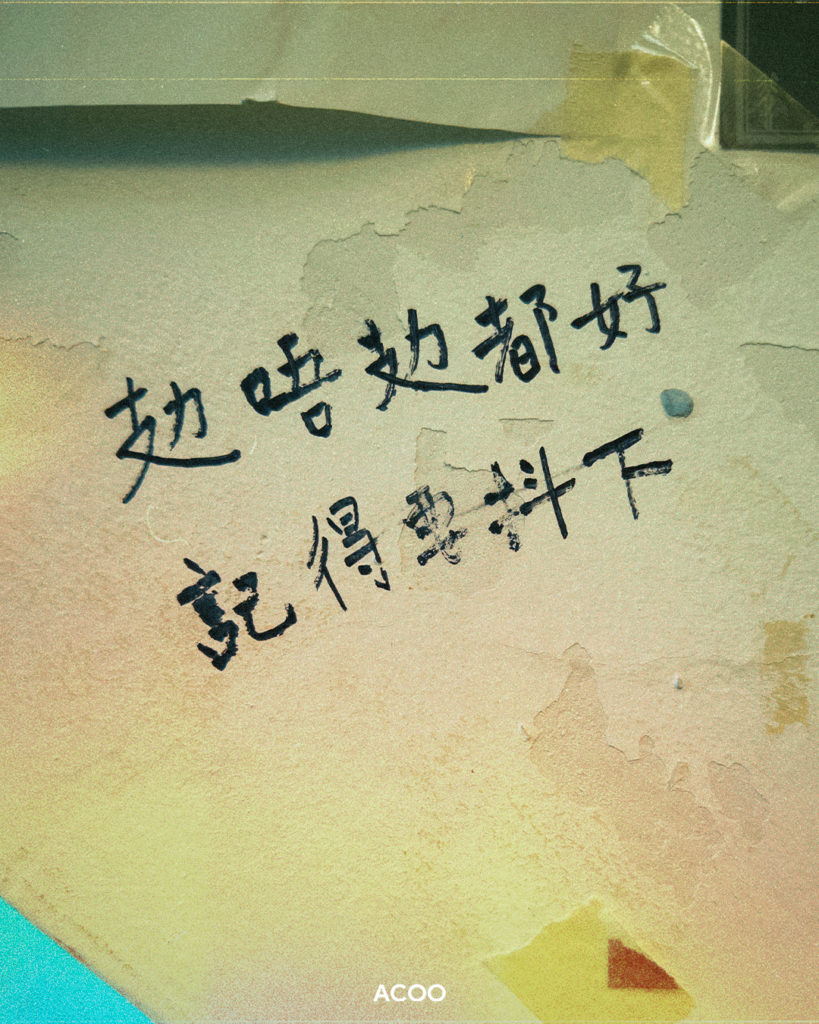 攰唔攰都好
記得要抖下
ACOO